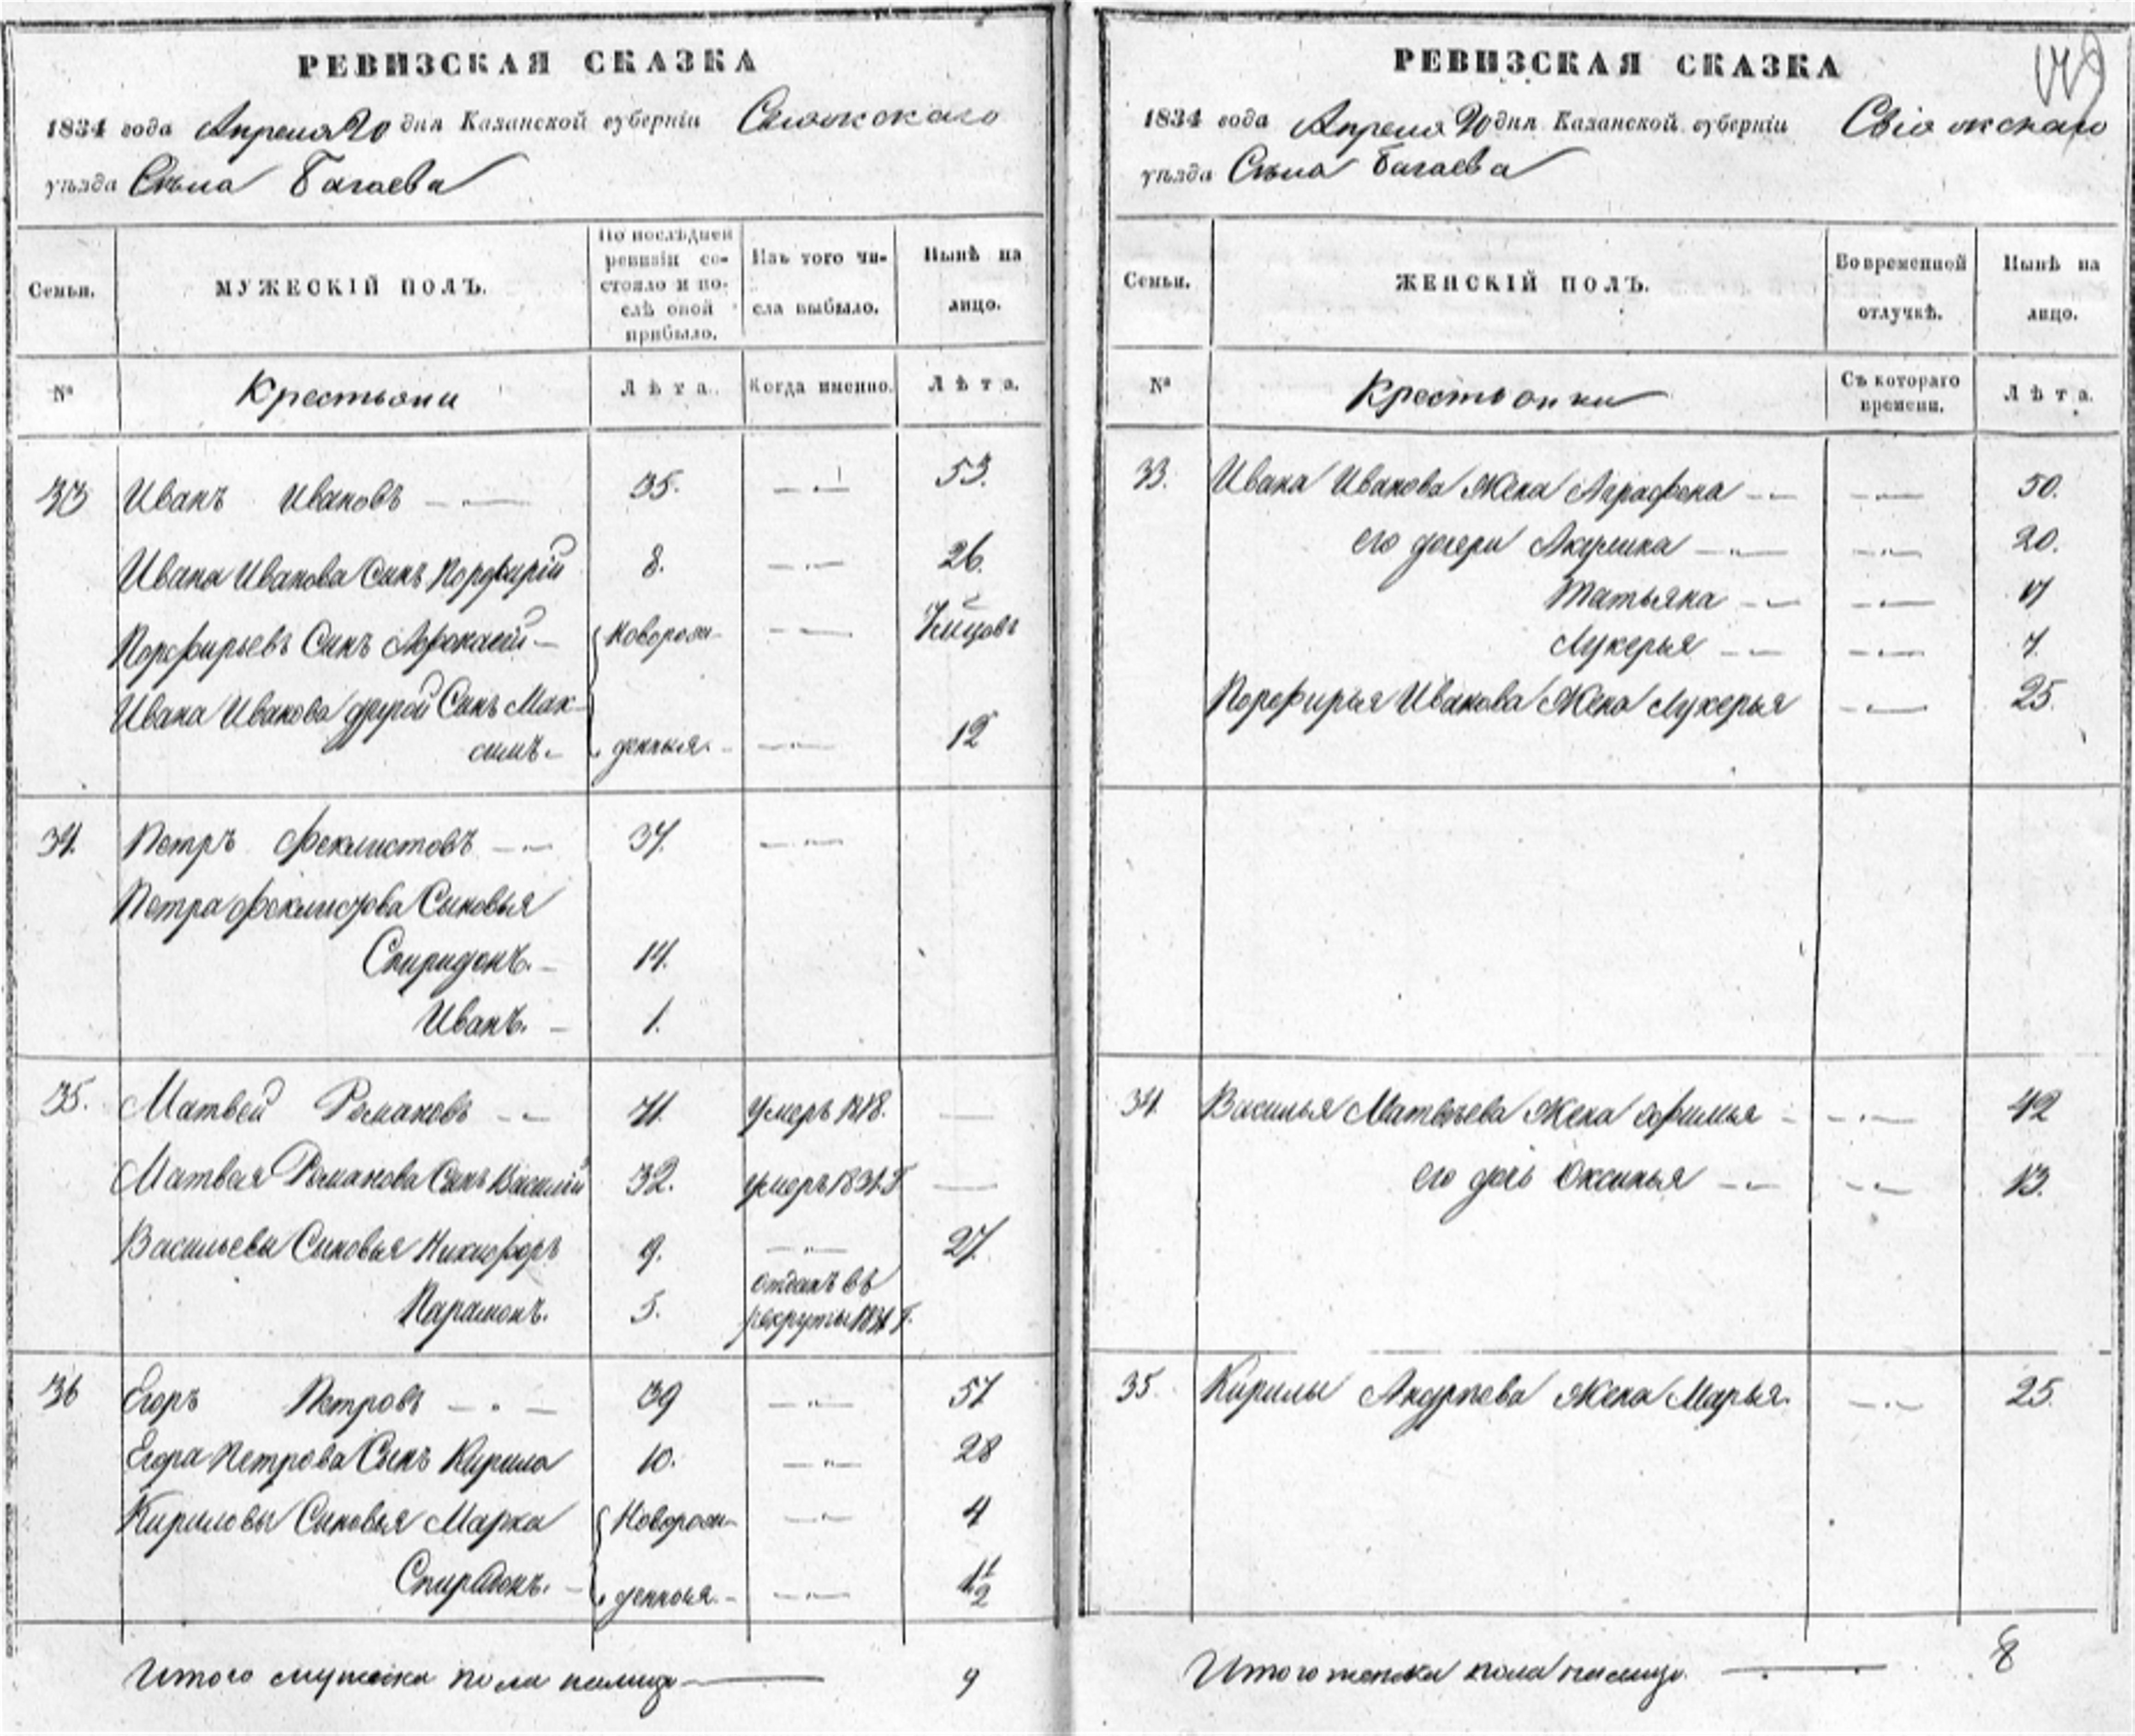 РЕВИЗСКАЯ СКАЗКА
1834 года Апреля 20 дня Казанской губерніи
уѣзда Сѣла Багаева
Семьи.
МУЖЕСКІЙ ПОЛЪ.
По послѣдней ревизіи состояло и послѣ оной прибыло.
Изъ того числа выбыло.
Нынѣ на лицо.
№
Крестьяни
Лѣта.
Когда именно.
Лѣта.
33 Иванъ Ивановъ 35. 53.
Ивана Иванова Сынъ Порфирій 8. 26.
Порфирьевъ Сынъ Афонасій Новорож
Ивана Иванова другой Сынъ Мак-
симъ денныя. 12
34. Петръ Феклистовъ 37.
Петра Феклистова Сыновья
Спиридонъ. 14.
Иванъ. 1.
35. Матвей Романовъ 71. умеръ 1818.
Матвея Романова Сынъ Василій 32. умеръ
Васильевы Сыновья Никифоръ 9. 27.
Парамонъ. 5. отданъ въ
рекруты
36 Егоръ Петровъ 39 57
Егора Петрова Сынъ Кирила 10. 28
Кириловы Сыновья Марка Новорож 4
Спиридонъ. денныя 1½
Итого мужеска пола налицо 9
РЕВИЗСКАЯ СКАЗКА
1834 года Апреля 20 дня Казанской губерніи Свіяжскаго
уѣзда Сѣла Багаева
Семьи.
ЖЕНСКІЙ ПОЛЪ.
Во временной отлучкѣ.
Нынѣ на лицо.
№
Крестьянки
Съ котораго времени.
Лѣта.
33. Ивана Иванова Жена Аграфена 50.
его дочери Акулина 20.
Татьяна 17
Лукерья 7.
Порфирья Иванова Жена Лукерья 25.
34. Василья Матвѣева Жена Афимья 42
его дочь Оксинья 13.
35 Кирилы Андрѣева Жена Марья 25.
Итого женска пола налицо. 8